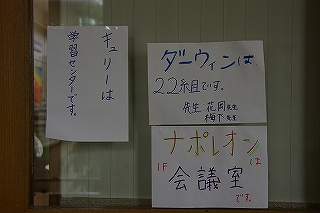 キュリーは
学習センターです。
ダーウィンは
22系目です。
先生 花岡先生
梅下先生
ナポレオンは
1F 会議室
です。